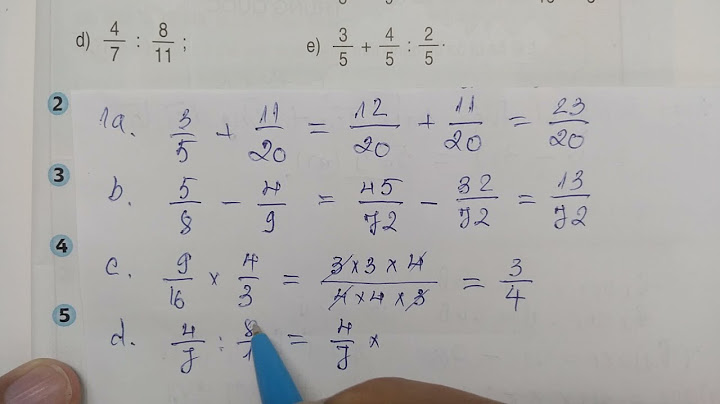 d) 4/7 : 8/11 ; e) 3/5 + 4/5 : 2/5 .
2
1a. 3/5 + 11/20 = 12/20 + 11/20 = 23/20
3
b. 5/8 - 4/9 = 45/72 - 32/72 = 13/72
4
c. 9/16 × 4/3 = 3×3×4/4×4×3 = 3/4
5
d. 4/7 : 8/1 = 4/7 ×